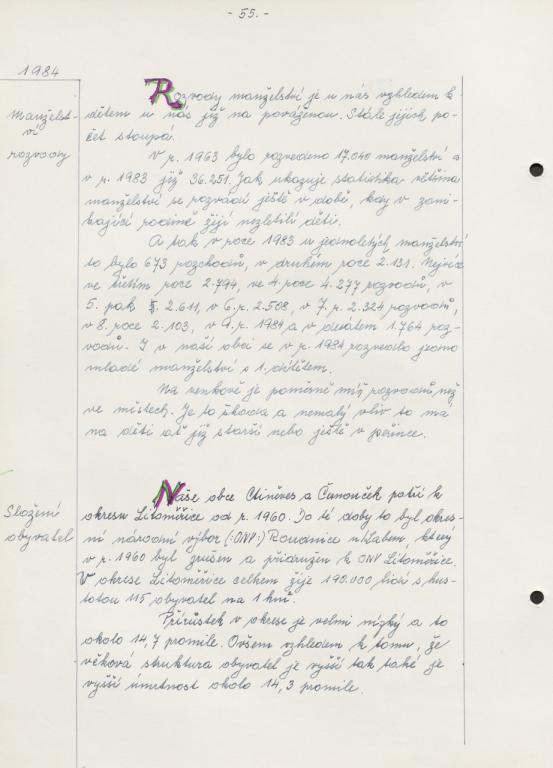 - 55. -
1984
Manželst-
ví
rozvody
Rozvody manželství je u nás vzhledem k
dětem u nás již na pováženou. Stále jejich po-
čet stoupá.
V r. 1963 bylo rozvedeno 17.040 manželství a
v r. 1983 již 36.251. Jak ukazuje statistika většina
manželství se rozvádí ještě v době, kdy v zani-
kající rodině žijí nezletilí děti.
A tak v roce 1983 u jednoletých manželství
to bylo 673 rozchodů, v druhém roce 2.131. Nejvíce
ve třetím roce 2.794, ve 4 roce 4.277 rozvodů, v
5. pak 2.611, v 6. r. 2.508, v 7. r. 2.324 rozvodů,
v 8. roce 2.103, v 9. r. 1984 a v desátém 1.764 roz-
vodů. I v naší obci se v r. 1984 rozvedlo jedno
mladé manželství s 1. dítětem.
Na venkově je poměrně míň rozvodů, než
ve městech. Je to škoda a nemalý vliv to má
na děti ať již starší nebo ještě v peřince.
Složení
obyvatel
Naše obce Ctiněves a Černouček patří k
okresu Litoměřice od r. 1960. Do té doby to byl okres-
ní národní výbor (:ONV:) Roudnice n/Labem, který
v r. 1960 byl zrušen a přidružen k ONV Litoměřice.
V okrese Litoměřice celkem žije 190.000 lidí s hus-
totou 115 obyvatel na 1 km².
Přírůstek v okrese je velmi nízký a to
okolo 14,7 promile. Ovšem vzhledem k tomu, že
věková struktura obyvatel je vyšší tak také je
vyšší úmrtnost okolo 14,3 promile.